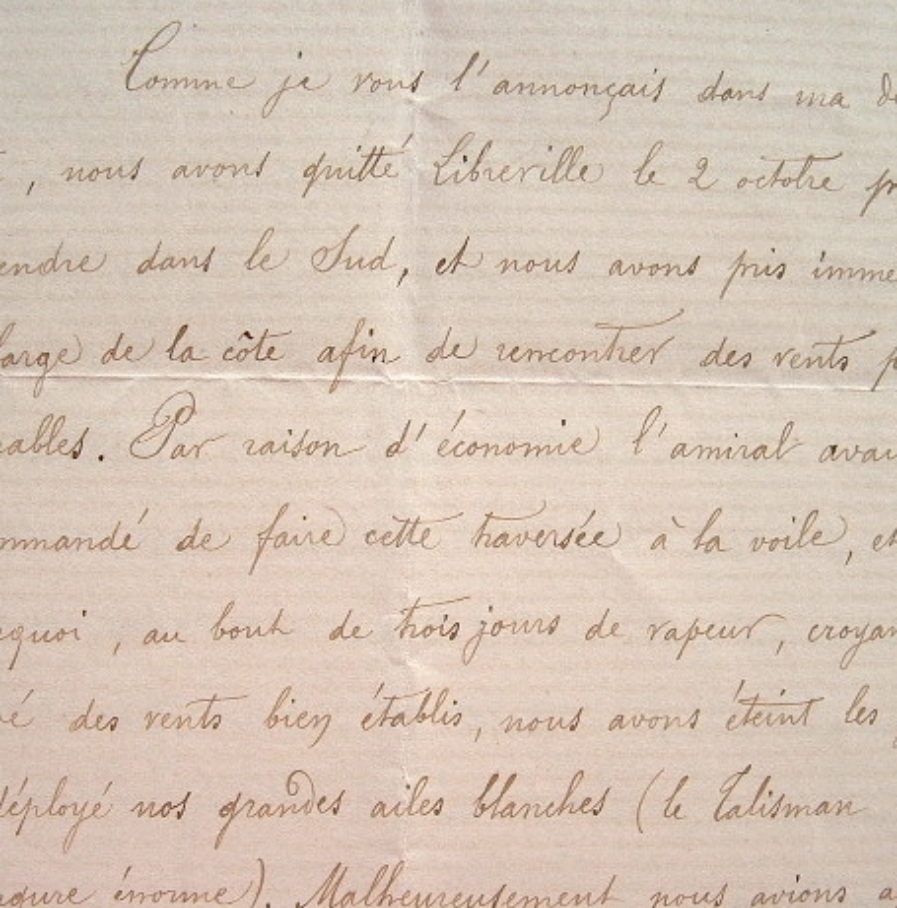 Comme je vous l'annonçais dans ma de
, nous avons quitté Libreville le 2 octobre pr
endre dans le Sud, et nous avons pris imme
large de la côte afin de rencontrer des vents p
eables. Par raison d'économie l'amiral avai
mmandé de faire cette traversée à la voile, et
equoi, au bout de trois jours de vapeur, croyan
vé des vents bien établis, nous avons éteint les
déployé nos grandes ailes blanches (le Talisman
énorme). Malheureusement nous avions a